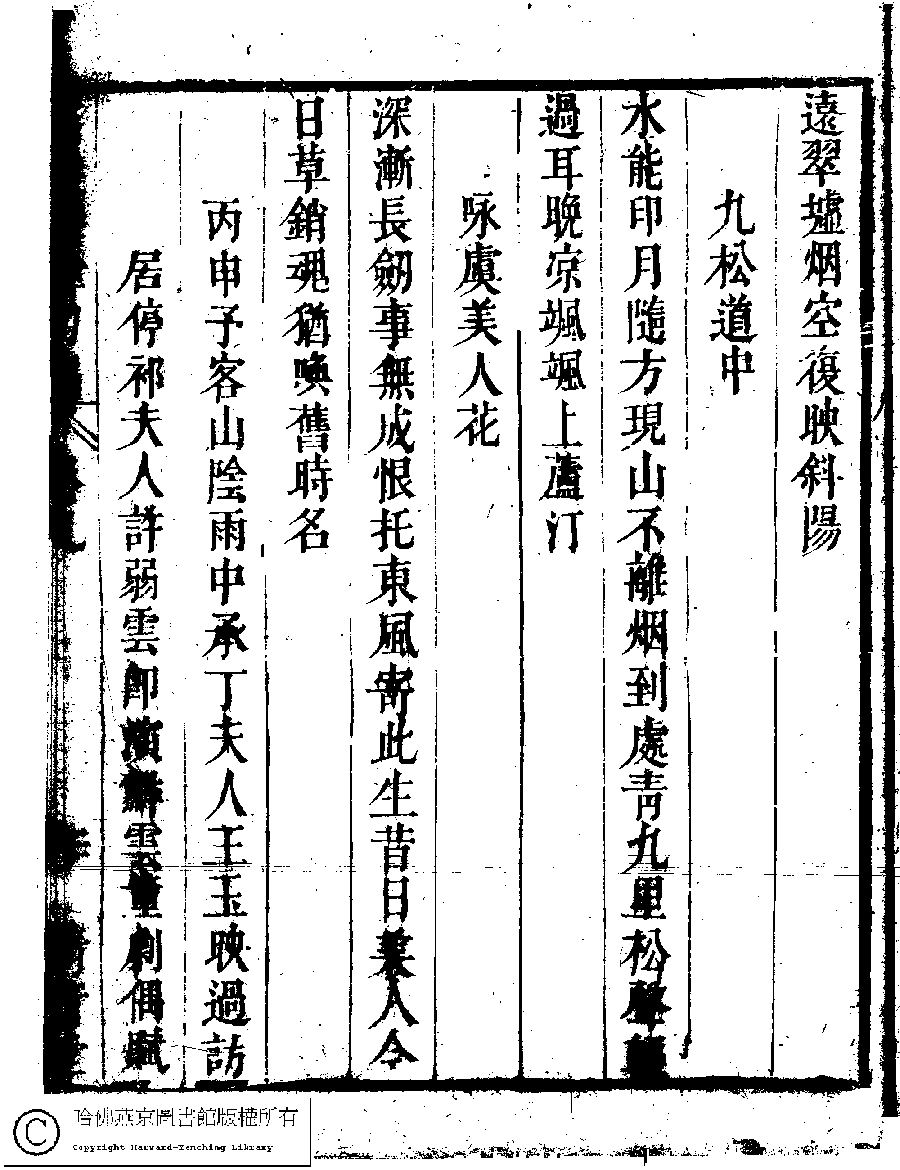 遠翠墟烟空復映斜陽
九松道中
水能印月隨方現山不離烟到處青九里松聲
過耳晚凉颯颯上蘆汀
咏虞美人花
深漸長劒事無成恨托東風寄此生昔日美人今
日草銷魂猶喚舊時名
丙申予客山陰雨中承丁夫人王玉映過訪
居停祁夫人許弱雲即演鮮雲童劇偶賦
哈佛燕京圖書館版權所有
Copyright Harvard-Yenching Library